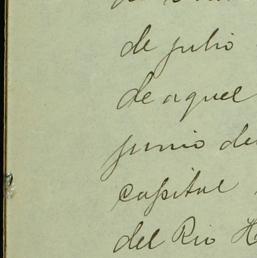 de julio
de aquel
junio de
capital
del Rio H